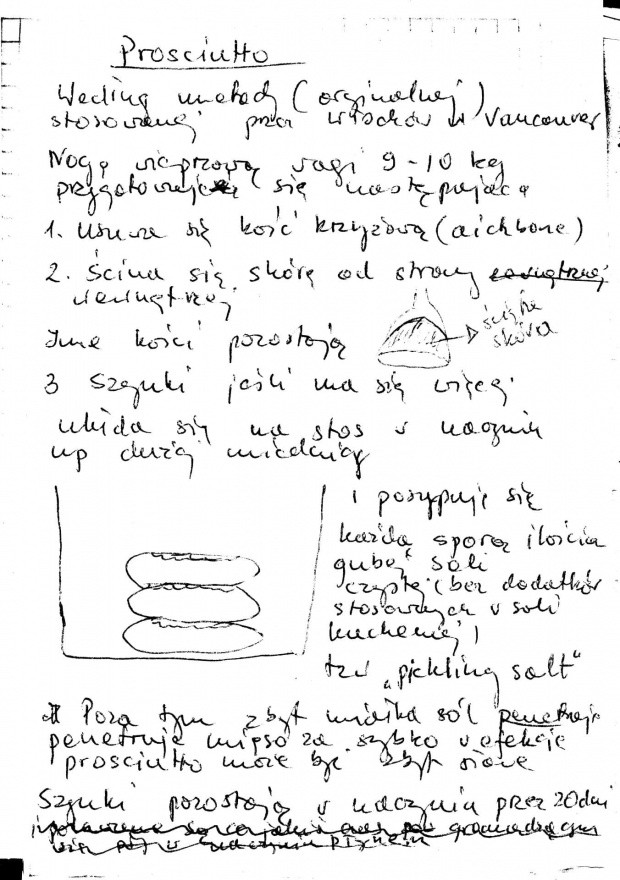 Prosciutto
Według metody (orginalnej)
stosowanej przez włochów w Vancouver
Nogę wieprzową wagi 9-10 kg
przygotowuje się następująco
1. usuwa się kość krzyżową (aichbone)
2. Ścina się skórę od strony zewnętrznej
wewnętrznej
Inne kości pozostają
ścięta
skóra
3 Szynki jeśli ma się więcej
układa się na stos w naczyniu
np dużej miednicy
i posypuje się
każdą sporą ilością
grubej soli
czystej (bez dodatków
stosowanych w soli
kuchennej)
tzw „pickling salt"
Poza tym zbyt miałka sól penetruje
penetruje mięso za szybko w efekcie
prosciutto może być zbyt słone
Szynki pozostają w naczyniu przez 20 dni